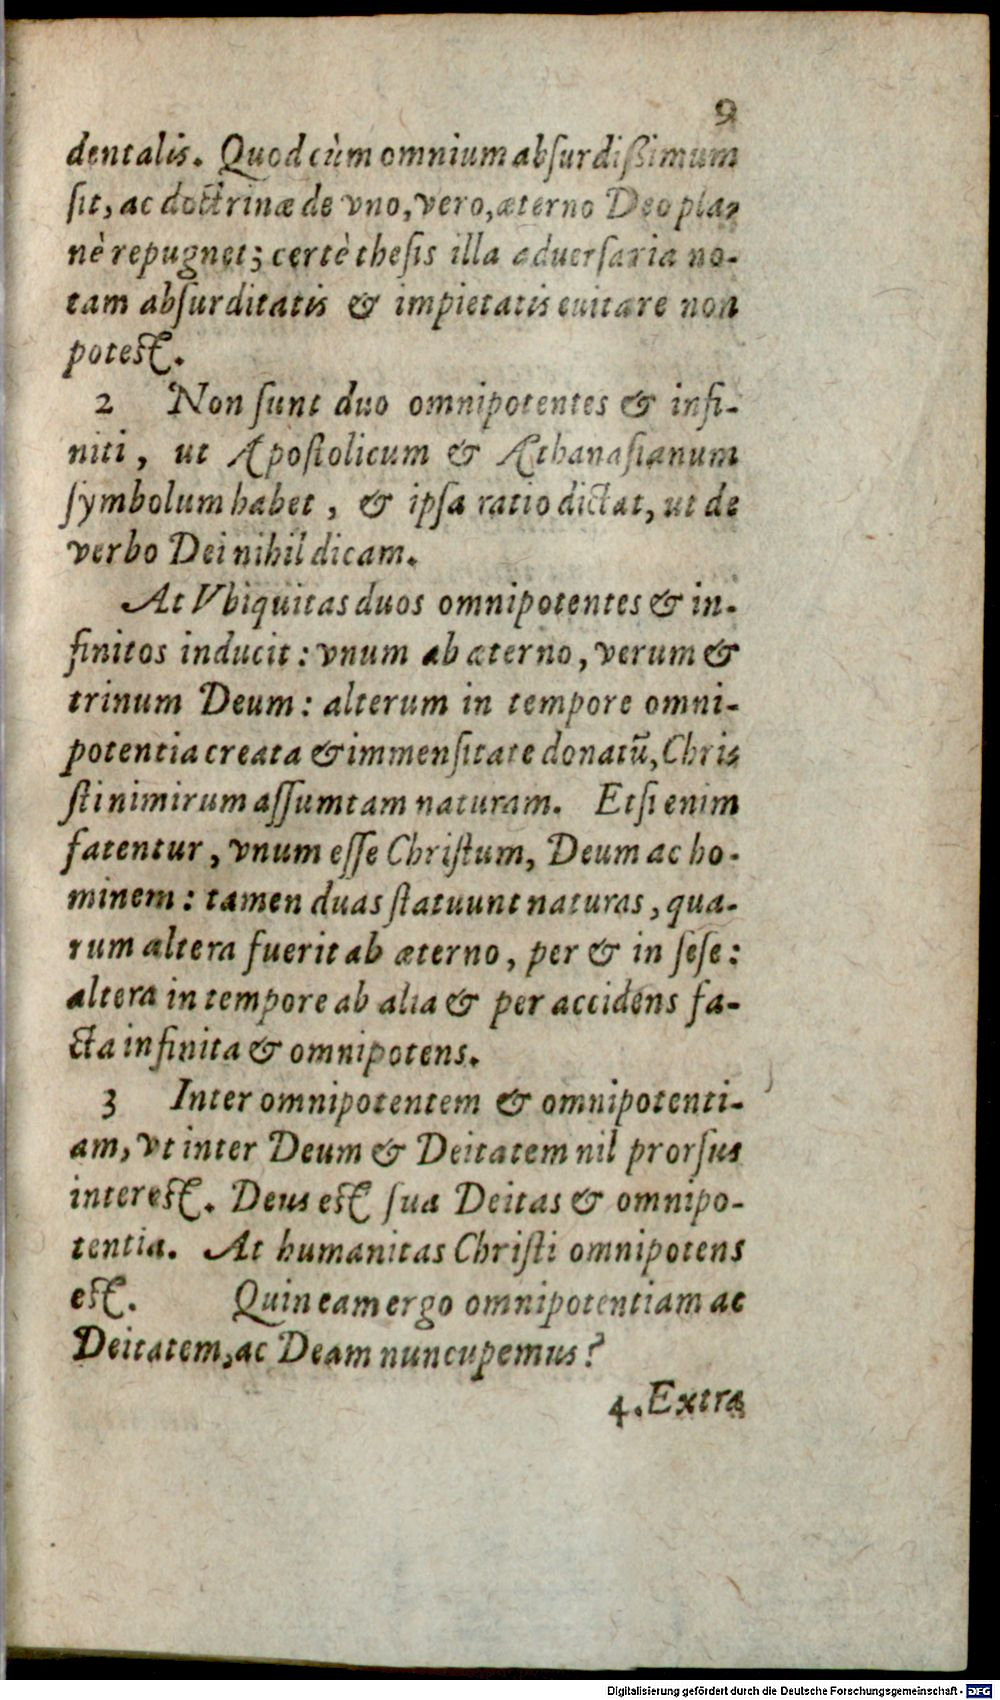 9
dentalis. Quod cùm omnium absurdißimum
sit, ac doctrinæ de vno, vero, æterno Deo pla-
nè repugnet; certè thesis illa adversaria no-
tam absurditatis & impietatis euitare non
potest.
2 Non sunt duo omnipotentes & infi-
niti, ut Apostolicum & Athanasianum
symbolum habet, & ipsa ratio dictat, ut de
verbo Dei nihil dicam.
At Vbiquitas duos omnipotentes & in-
finitos inducit: vnum ab æterno, verum &
trinum Deum: alterum in tempore omni-
potentia creata & immensitate donatū, Chri-
sti nimirum assumtam naturam. Etsi enim
fatentur, vnum esse Christum, Deum ac ho-
minem: tamen duas statuunt naturas, qua-
rum altera fuerit ab æterno, per & in sese:
altera in tempore ab alia & per accidens fa-
cta infinita & omnipotens.
3 Inter omnipotentem & omnipotenti-
am, vt inter Deum & Deitatem nil prorsus
interest. Deus est sua Deitas & omnipo-
tentia. At humanitas Christi omnipotens
est. Quin eam ergo omnipotentiam ac
Deitatem, ac Deam nuncupemus?
4. Extra
Digitalisierung gefördert durch die Deutsche Forschungsgemeinschaft - DFG